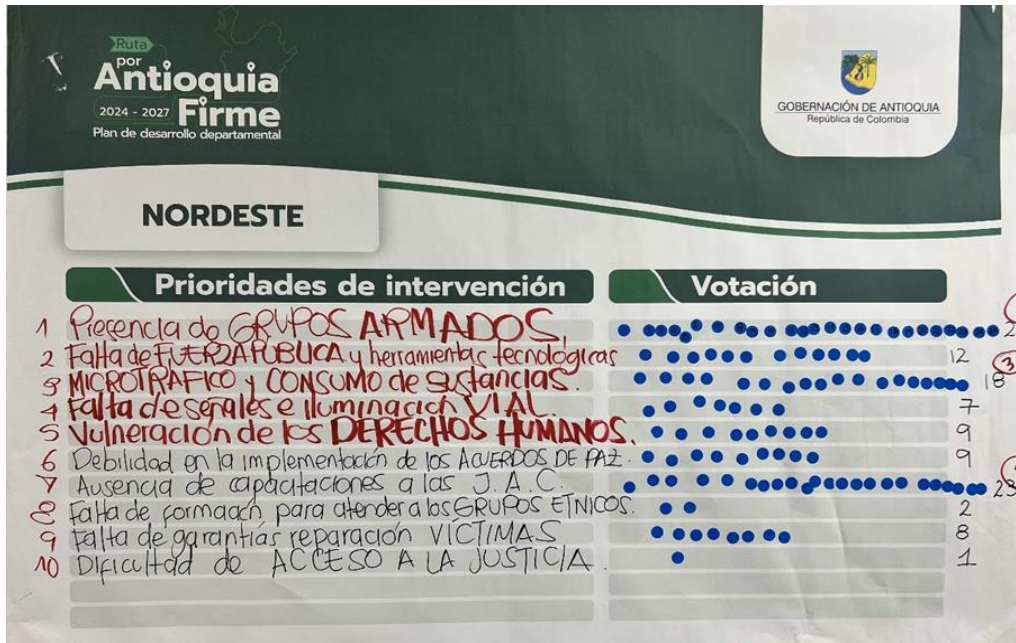 Ruta
por
Antioquia
2024 - 2027 Firme
Plan de desarrollo departamental
GOBERNACIÓN DE ANTIOQUIA
República de Colombia
NORDESTE
Prioridades de intervención Votación
1 Precencia de GRUPOS ARMADOS. 2
2 Falta de FUERZA PUBLICA y herramientas tecnológicas 12
3 MICROTRAFICO y CONSUMO de sustancias. 18 3
4 Falta de señales e iluminación VIAL. 7
5 Vulneración de los DERECHOS HUMANOS. 9
6 Debilidad en la implementación de los ACUERDOS DE PAZ. 9
7 Ausencia de capacitaciones a las J.A.C. 23
8 Falta de formación para atender a los GRUPOS ETNICOS. 2
9 Falta de garantías reparación VÍCTIMAS 8
10 Dificultad de ACCESO A LA JUSTICIA. 1